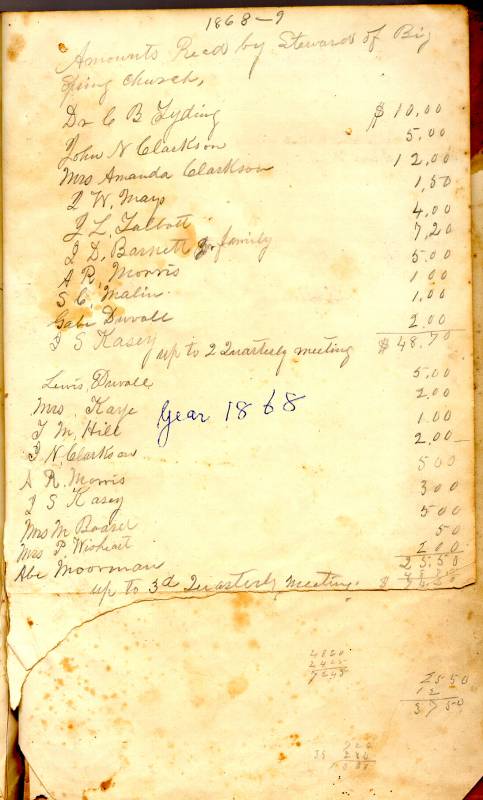 1868-9
Amounts Recd by Steward of Big
Spring Church,
Dr C B Tyding $10.00
John N Clarkson 5.00
Mrs Amanda Clarkson 12.00
J W. Mays 1.50
J L. Talbott 4.00
J D. Barnett & family 7.20
A R. Morris 5.00
S C. Malin 1.00
Gabe Duvall 1.00
J S Kasey 2.00
up to 2 Quarterly meeting $48.70
Lewis Duvall 5.00
Mrs. Kaye 2.00
T M. Hill 1.00
J N. Clarkson 2.00
Year 1868
A R. Morris 500
J S Kasey 300
Mrs M Board 500
Mrs P. Wisheart 50
Abe Moorman 200
25.50
up to 3d Quarterly Meeting. $
4820
2425
7245
2550
12
3750